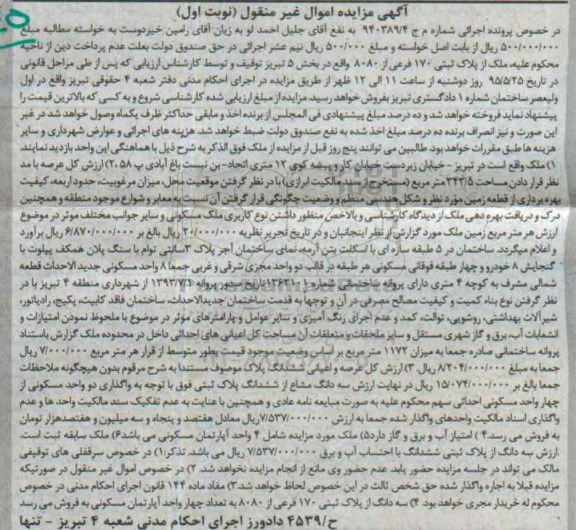 آگهی مزایده اموال غیر منقول (نوبت اول)
در خصوص پرونده اجرائی شماره م ج ۹۴۰۳۸۹/۴ به نفع آقای جلیل احمد لو به زیان آقای رامین خیردوست به خواسته مطالبه مبلغ
۵۰۰/۰۰۰/۰۰۰ ریال از بابت اصل خواسته و مبلغ ۵۰۰/۰۰۰ ریال نیم عشر اجرائی در حق صندوق دولت بعلت عدم پرداخت دین از ناحیه
محکوم علیه، ملک از پلاک ثبتی ۱۷۰ فرعی از ۸۰۸۰ واقع در بخش ۵ تبریز توقیف و توسط کارشناس ارزیابی که پس از طی مراحل قانونی
در تاریخ ۹۵/۵/۲۵ روز دوشنبه از ساعت ۱۱ الی ۱۲ ظهر از طریق مزایده در اجرای احکام مدنی دفتر شعبه ۴ حقوقی تبریز واقع در اول
ولیعصر ساختمان شماره ۱ دادگستری تبریز بفروش خواهد رسید. مزایده از مبلغ ارزیابی شده کارشناسی شروع و به کسی که بالاترین قیمت را
پیشنهاد نماید فروخته خواهد شد و ده درصد مبلغ پیشنهادی فی المجلس از برنده اخذ و مابقی حداکثر ظرف یکماه وصول خواهد شد در غیر
این صورت و نیز انصراف برنده ده درصد مبلغ اخذ شده به نفع صندوق دولت ضبط خواهد شد. هزینه های اجرائی و عوارض شهرداری و سایر
هزینه ها طبق مقررات خواهد بود. طالبین می توانند پنج روز قبل از مزایده از ملک فوق الذکر به شرح ذیل با هماهنگی این واحد بازدید نمایند.
۱) ملک واقع است در تبریز - خیابان زبردست خیابان کارو پیشه کوی ۱۲ متری اتحاد- بن بست باغ آبادی پ ۲۰۵۸) ارزش کل عرصه با مد
نظر قرار دادن مساحت ۳۴۳/۵ متر مربع (مستخرج از سند مالکیت ابرازی) با در نظر گرفتن موقعیت محل، میزان مرغوبیت، حدود اربعه، کیفیت
بهره برداری از قطعه زمین مورد نظر و شکل هندسی منظم و وضعیت چگونگی قرار گرفتن آن نسبت به معابر و شوارع موجود منطقه و همچنین
درک و دریافت بهره دهی ملک از دیدگاه کارشناسی و بالاخص منظور داشتن نوع کاربری ملک مسکونی و سایر جوانب مختلف موثر در موضوع
ارزش هر متر مربع زمین ملک مورد گزارش از نظر اینجانبان و در تاریخ تحریر نظریه ۲۰/۰۰۰/۰۰۰ ریال بالغ بر ۶/۸۷۰/۰۰۰/۰۰۰ ریال برآورد
و اعلام میگردد. ساختمان در ۵ طبقه سازه ای با اسکلت بتن آرمه، نمای ساختمان آجر پلاک ۳سانتی توام با سنگ پلان همکف پیلوت با
گنجایش ۸ خودرو و چهار طبقه فوقانی مسکونی هر طبقه در قالب دو واحد مجزی شرقی و غربی جمعا ۸ واحد مسکونی جدید الاحداث قطعه
شمالی مشرف به کوچه ۴ متری دارای پروانه ساختمانی شماره ۱۳۶۳۱۰۱ تاریخ صدور پروانه ۱۳۹۳/۷/۱ از شهرداری منطقه ۴ تبریز با در
نظر گرفتن نوع بناء کمیت و کیفیت مصالح مصرفی در آن و توجها به قدمت ساختمان جدیدالاحداث، ساختمان فاقد کابینت، پکیج، رادیاتور،
شیرآلات بهداشتی، روشویی، توالت، کمد و عدم اجرای رنگ آمیزی و سایر عوامل و پارامترهای موثر در موضوع با ملحوظ نمودن امتیازات و
انشعابات آب، برق و گاز شهری مستقل و سایر ملحقات و متعلقات آن مساحت کل اعیانی های احداثی داخل در محدوده ملک گزارش باستناد
پروانه ساختمانی صادره جمعا به میزان ۱۱۷۲ متر مربع بر اساس وضعیت موجود قیمت بطور متوسط از قرار هر متر مربع ۷/۰۰۰/۰۰۰ ریال
جمعا به مبلغ ۸/۲۰۴/۰۰۰/۰۰۰ ریال. ۳) ارزش کل عرصه و اعیانی ششدانگ پلاک موصوف مستندا به شرح مرقوم بدون هیچگونه ملاحظات
جمعا بالغ بر ۱۵/۰۷۴/۰۰۰/۰۰۰ ریال در نهایت ارزش سه دانگ مشاع از ششدانگ پلاک ثبتی فوق با توجه به واگذاری دو واحد مسکونی از
چهار واحد مسکونی احداثی سهم محکوم علیه به صورت مبایعه نامه عادی و همچنین با عنایت به عدم تفکیک سند مالکیت واحد ها و عدم
واگذاری اسناد مالکیت واحدهای واگذار شده جمعا به ارزش ۷/۵۳۷/۰۰۰/۰۰۰ ریال معادل هفتصد و پنجاه و سه میلیون و هفتصدهزار تومان
به فروش می رسد. ۴) امتیاز آب و برق و گاز دارد۵) ملک مورد مزایده شامل ۴ واحد آپارتمان مسکونی می باشد۶) ملک سابقه ثبت است.
ارزش سه دانگ از پلاک ثبتی ششدانگ با احتساب آب و برق ۷/۵۳۷/۰۰۰/۰۰۰ ریال می باشد. تذکر:۱) در خصوص سرقفلی های توقیفی
مالک می تواند در جلسه مزایده حضور یابد عدم حضور وی مانع از انجام مزایده نخواهد شد. ۲) در خصوص اموال غیر منقول در صورتیکه
مزایده قبلا به اجاره واگذار شده حق شخص ثالث در این خصوص لحاظ خواهد شد. ۳) مفاد ماده ۱۴۴ قانون اجرای احکام مدنی در خصوص
محکوم له خریدار مجری خواهد بود. ۴) سه دانگ از پلاک ثبتی ۱۷۰ فرعی از ۸۰۸۰ به تعداد چهار واحد آپارتمان مسکونی به فروش می رسد
ح/۴۵۳۹ دادورز اجرای احکام مدنی شعبه ۴ تبریز - تنها